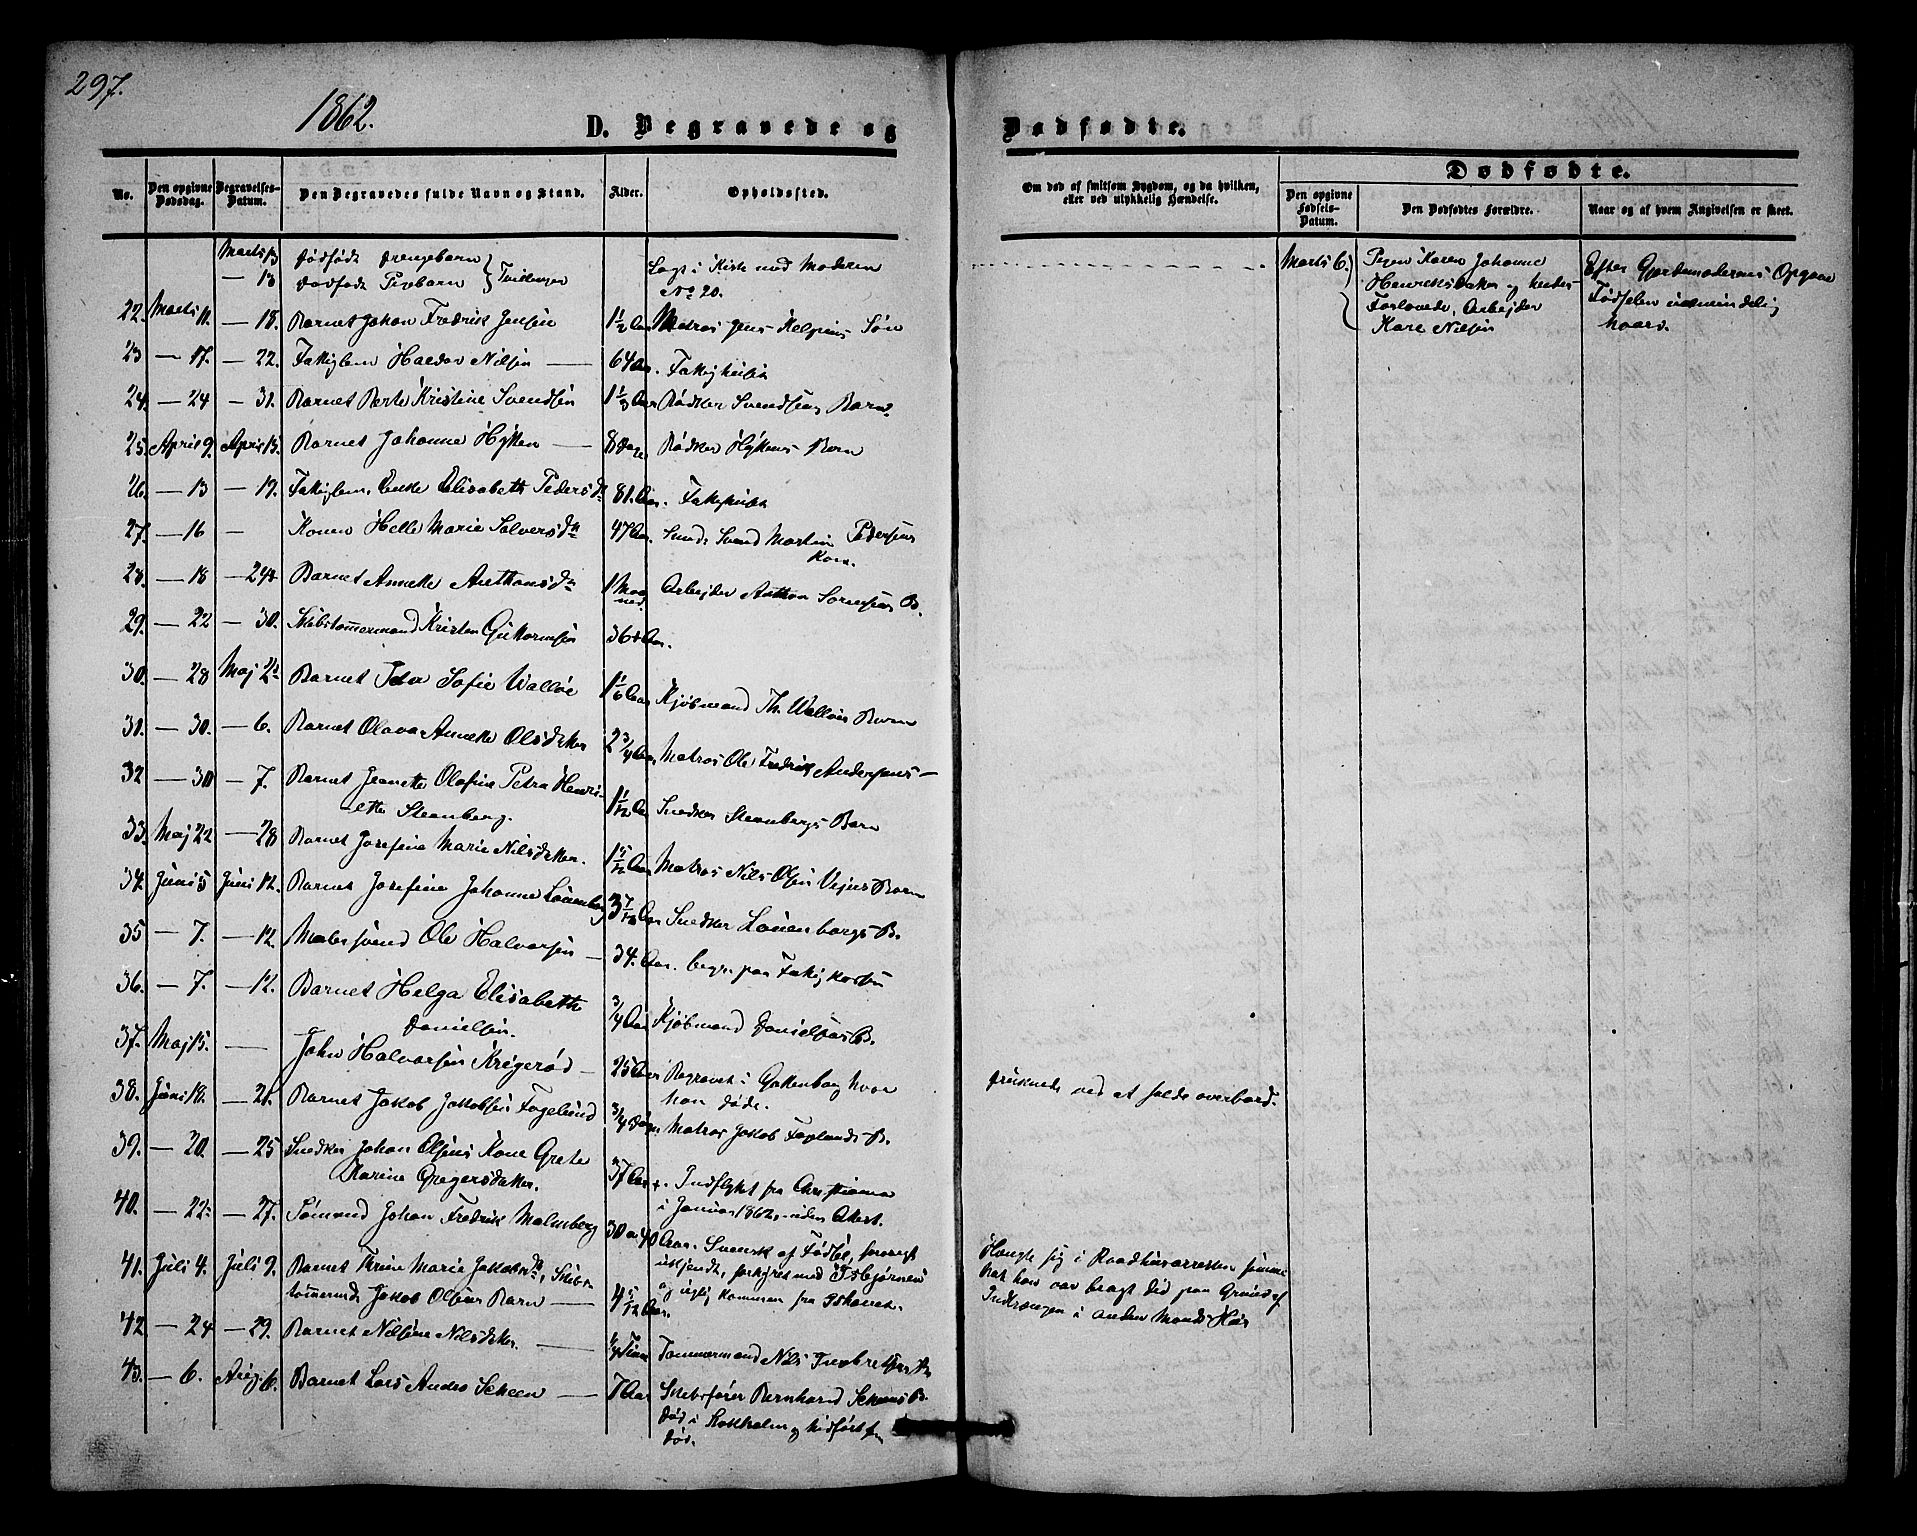 297.
1862.
D. Begravede og Dødfødte.
No. Den opgivne Dødsdag. Begravelses-Datum. Den Begravedes fulde Navn og Stand. Alder. Opholdssted.
Om død af smitsom Sygdom, og da hvilken, eller ved ulykkelig Hændelse.
Dødfødte.
Den opgivne Fødsels-Datum. Den Dødfødtes Forældre. Naar og af hvem Angivelsen er skeet.
Marts 13 Dødfødt Drengebarn } Tvillinger Lagt i Kiste med Moderen
— 13 Dødfødt Pigebarn No 20.
Marts 6. Pigen Karen Johanne
Henriksdatter og hendes
Forlovede, Arbejder
Kare Nilsen
Efter Gjordemoderens Opgave
Fødselen ualmindelig
haard.
22. Marts 11. — 18. Barnet Johan Fredrik Jensen 1 1/2 Aar Matros Jens Søn
23 — 17. — 22. Fattiglem Halvor Nilsen — 64 Aar. Fattighuset
24. — 24 — 31. Barnet Berte Kristine Svendsen 1 1/3 Aar Bødker Svendsens Barn.
25. April 9. April 15. Barnet Johanne Hytten — 8 Dage Bødker Hyttens Barn
26. — 13 — 19. Fattiglem, Enke Elisabeth Pedersdr 81. Aar. Fattighuset
27. — 16 — Konen Helle Marie Salversdr 47 Aar. Svend Martin Pedersens
Kone.
28. — 18 — 24 Barnet Annette Anthonsdr 1 Maa
ned. Arbejder Anthon Sørensens B.
29. — 22 — 30. Skibstømmermand Kristen Guttormsen 36 Aar.
30. — 28 Maj 2 Barnet Sofie Walløe 1 1/6 Aar Kjøbmand Th. Walløes Barn
31. — 30. — 6. Barnet Olava Annette Olsdatter 2 3/4 Aar Matros Ole Fredrik Andersens —
32 — 30 — 7. Barnet Jeanette Olefine Petra Henri-
ette Steenberg. 1 1/12 Aar Snedker Steenbergs Barn
33. Maj 22 — 28 Barnet Josefine Marie Nilsdatter. 1 5/12 Aar Matros Nils Olsen Vejes Barn
34. Juni 5 Juni 12. Barnet Josefine Johanne Løvenborg 3 7/12 Aar Snedker Løvenborgs B.
35 — 7. — 12. Malersvend Ole Halvorsen — 34. Aar. begr. paa Fattigkassen
36. — 7. — 12. Barnet Helga Elisabeth
Danielsen. 3/4 Aar Kjøbmand Danielsens B.
37. Maj 15. — John Halvorsen Krigerød — 25 Aar Begravet i Gøteborg hvor
han døde.
Druknede ved at falde overbord.
38. Juni 18. — 21. Barnet Jakob Jakobsen Fogelund 3/4 Matros Jakob Foglunds B.
39. — 20. — 25 Snedker Johan Olsens Kone Grete
Karine Gregersdatter. 37 Aar Indflyttet fra Christiania
i Januar 1862, uden Attest.
40. — 22 — 27. Sømand Johan Fredrik Malmberg 30 a 40 Aar. Svensk af Fødsel, forøvrigt
ukjendt, forhyret med Isbjørnen
og nylig kommen fra Ishavet.
Hængte sig i Raadhusarresten
han var bragt did paa Grund af
Indtrængen i anden Mands Hus
41. Juli 4. Juli 9. Barnet Trine Marie Jakobsdr, Skibs-
tømmermd. Jakob Olsens Barn — 4 5/12 Aar.
42. — 24 — 29. Barnet Nilsine Nilsdatter. — 1/4 Time Tømmermand Nils
43. — 6. Aug. 6. Barnet Lars Andr. Scheen — 7 Aar Skibsfører Bernhard Scheens B.
død i Stokholm og hidført
død.